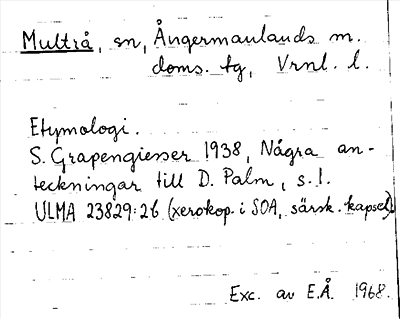 Multrå, sn, Ångermanlands m.
doms. tg, Vrnl. l.
Etymologi.
S. Grapengiesser 1938, Några an-
teckningar till D. Palm, s. 1.
ULMA 23829:26 (xerokop. i SOA, särsk. kapsel).
Exc. av E.Å. 1968.